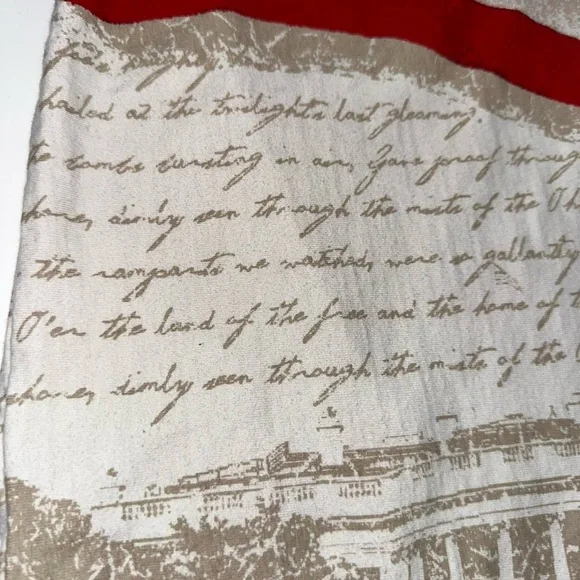 hailed at the twilight's last gleaming.
he bombs bursting in air, Gave proof through
shore, dimly seen through the mists of the
the ramparts we watched, were so gallantly
O'er the land of the free and the home of t
shore, dimly seen through the mists of the